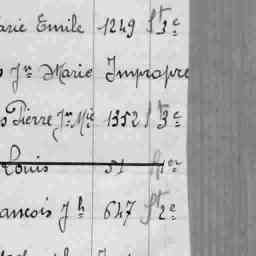 arie Emile 1249 St 3e
Jn Marie Impropre
s Pierre Jn Mie 1352 St 3e
Louis 51
ancois Jh 647 St 2e